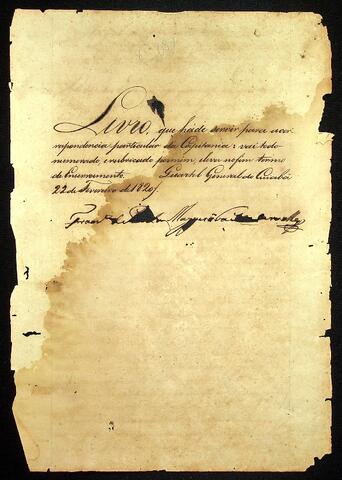 Livro, que hade servir para a cor
respondencia particular da Capitania: vai todo
numerado, e rubricado por mim, e leva no fim termo
de Encerramento. Quartel General do Cuiabá
22 de Fevereiro de 1820/.
Franco de Paula Magessi